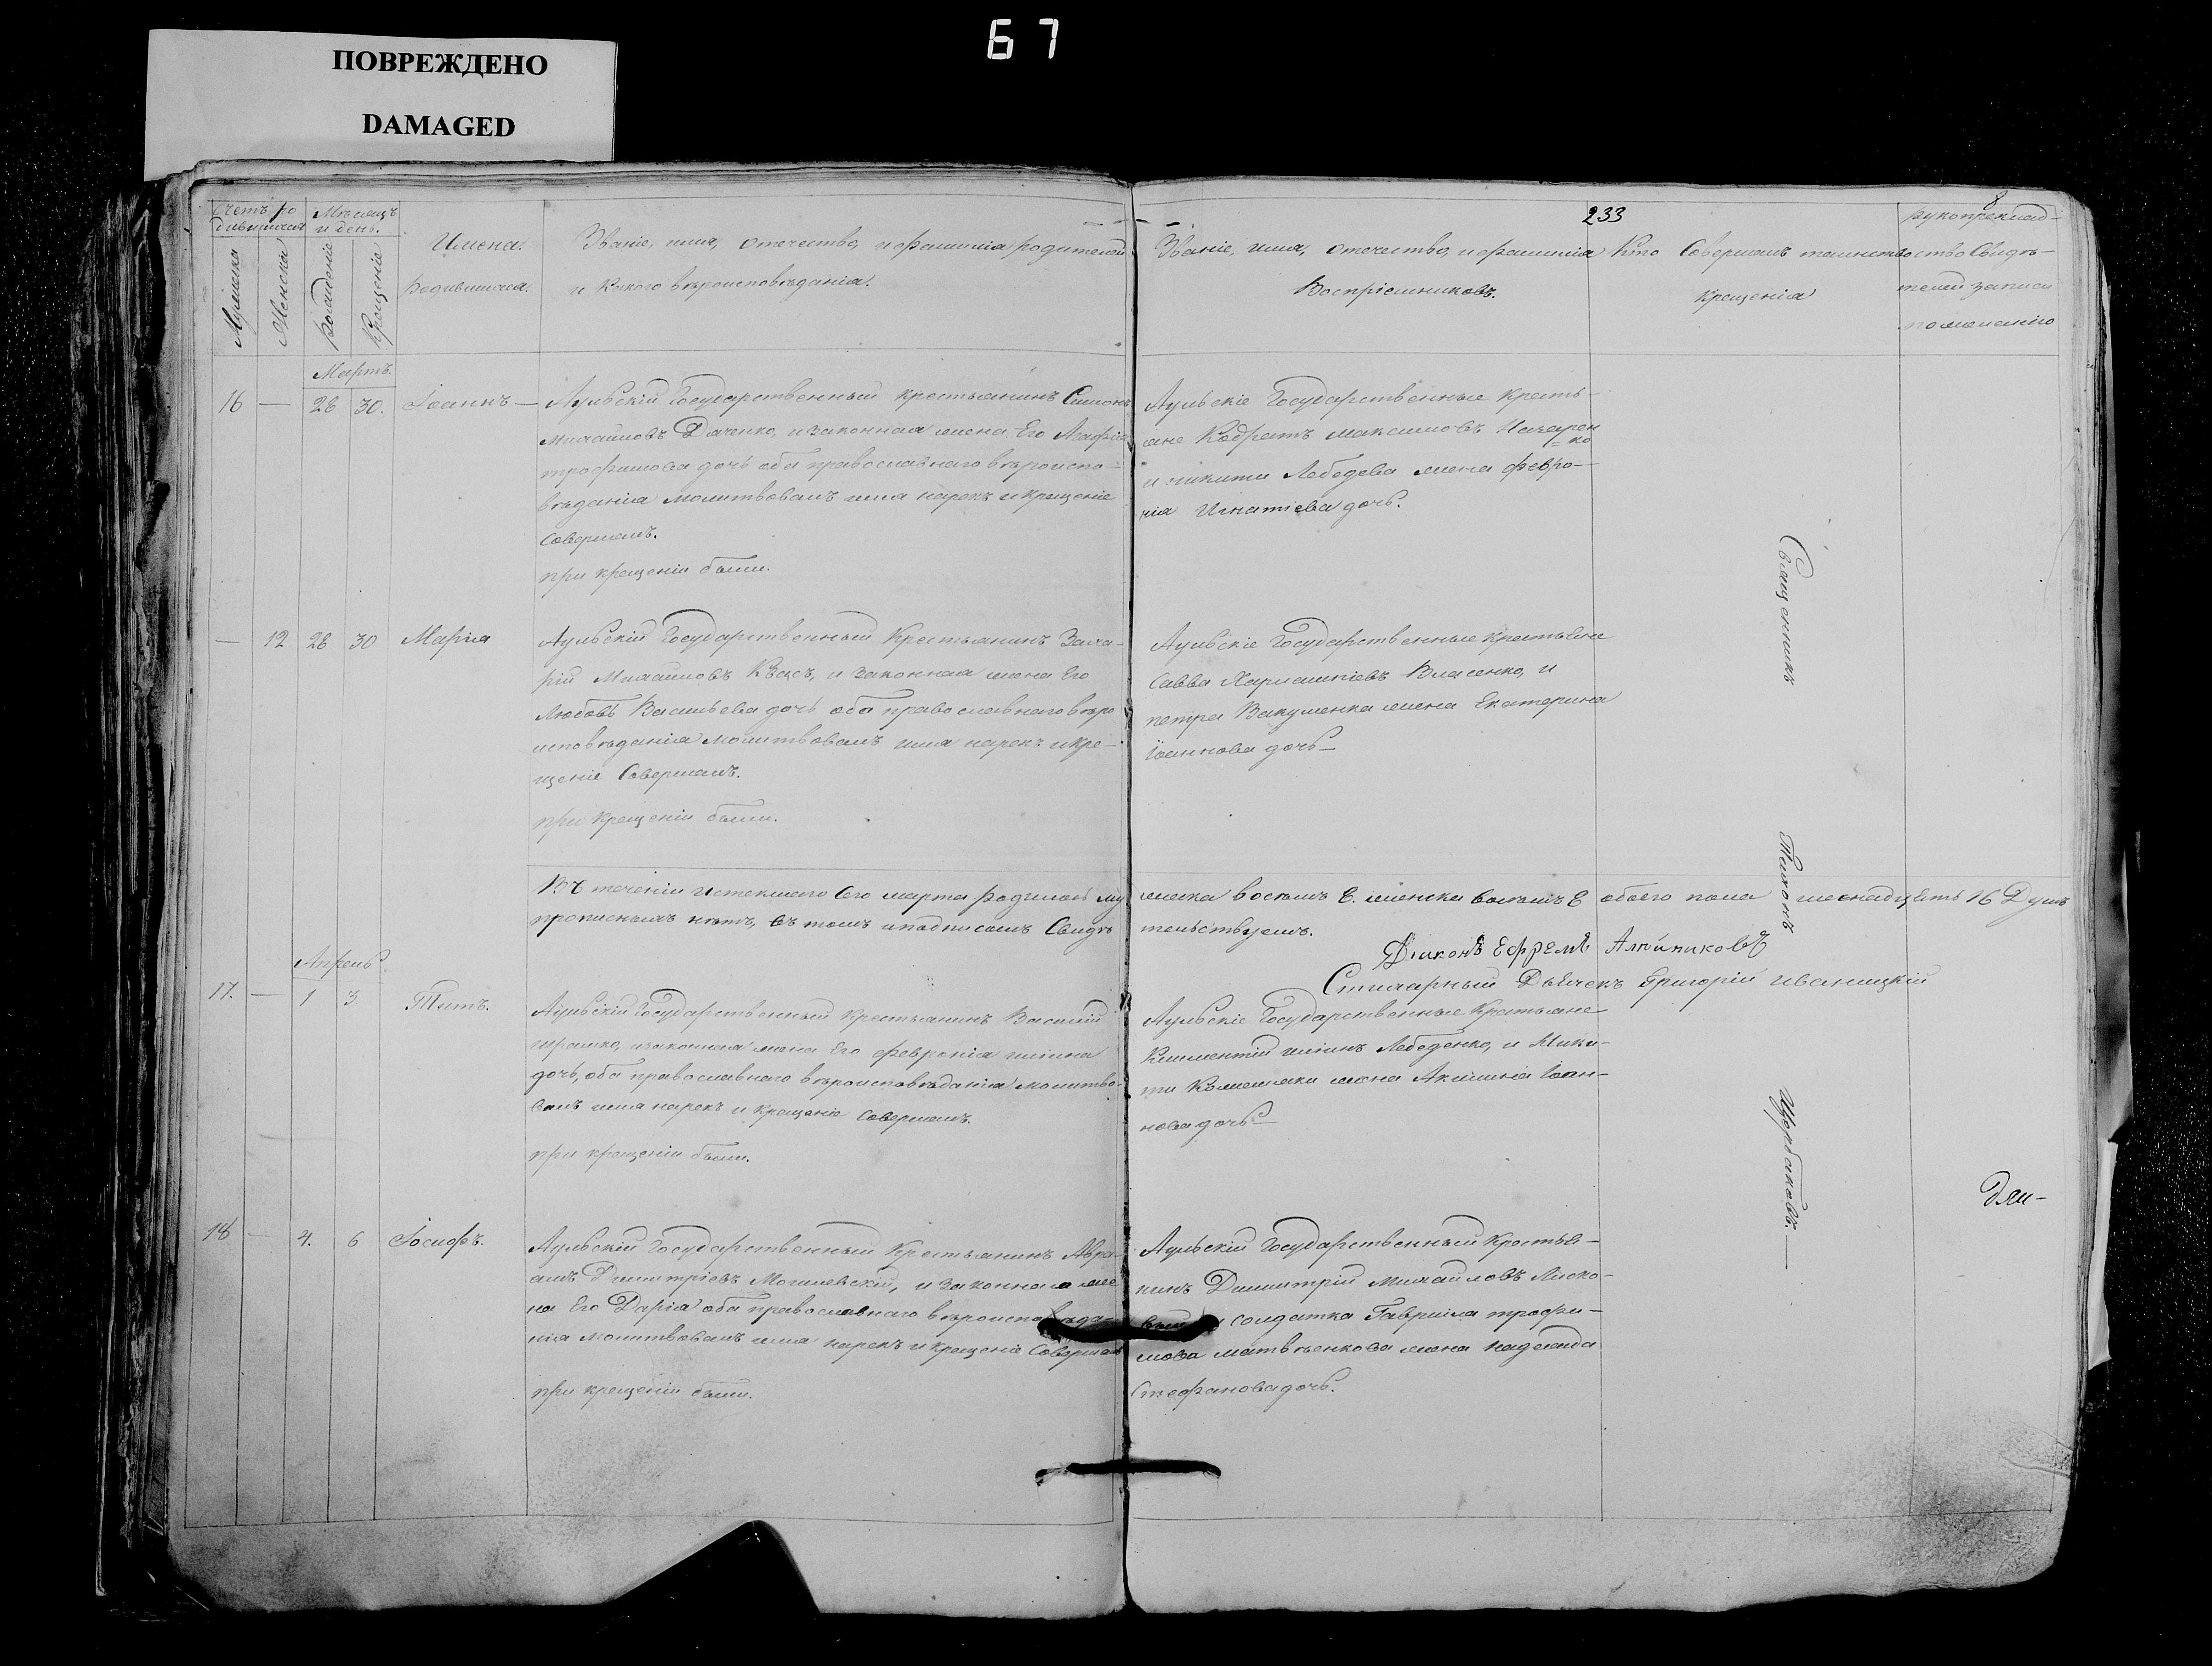 67
ПОВРЕЖДЕНО
DAMAGED
233
8
Счетъ ро
дившихся
Мѣсяцъ
и день.
Мужеска
Женска
рожденіе
крещеніе
Имена.
Родившихся.
Званіе, имя, отечество, и фамилія родителей
и какого вѣроисповѣданія.
Званіе, имя, отечество, и фамилія
Воспріемниковъ.
Кто Совершалъ таинство
Крещенія
рукоприклад-
ство Свидѣ-
телей записи
по желанію
Мартъ.
16 — 28 30. Іоаннъ —
Аульскій Государственный крестьянинъ Симонъ
Михаиловъ Дяченко, и законная жена Его Агафія
трофимова дочь оба православнаго вѣроиспо-
вѣданія молитвовалъ имя нарекъ и крещеніе
Совершалъ.
при крещеніи были.
Аульскіе Государственные Кресть-
яне Кодратъ максимовъ Назарен
=ко
и никиты Лебедева жена февро-
нія Игнатіева дочь.
— 12 28 30 Марія
Аульскій Государственный Крестьянинъ Заха-
рій Михаиловъ и законная жена Его
Любовь Васильева дочь оба православнаго вѣро
исповѣданія молитвовалъ имя нарекъ и кре-
щеніе Совершалъ.
при крещеніи были.
Аульскіе Государственные крестьяне
Савва Харлампіевъ Власенко, и
петра Вакуленка жена Екатерина
Іоаннова дочь —
Въ теченіи истекшаго Сего марта родилось му
жеска восемь 8. женска восемь 8 обоего пола шеснадцать 16 Душъ
прописныхъ нѣтъ, въ томъ и подписомъ Свидѣ
тельствуемъ.
Діиконъ Ефремъ Алѣйниковъ
Стихарный Дьячекъ Григорій Иваницкій
Апрель
17. — 1 3. Титъ.
Аульскій Государственный Крестьянинъ Василій
и законная жена Его феВронія
дочь, оба православнаго вѣроисповѣданія молитво-
валъ имя нарекъ и крещеніе Совершалъ.
при крещеніи были.
Аульскіе Государственные Крестьяне
Климентій Лебеденко, и Мики-
ты жена Акилина Іоан-
нова дочь —
18 — 4. 6 Іосифъ.
Аульскій Государственный Крестьянинъ Авра-
амъ Димитріевъ Могилевскій, и Законная же
на Его Дарія оба православнаго вѣроисповѣда-
нія молитвовалъ имя нарекъ и крещеніе Совершалъ
при крещеніи были.
Аульскій Государственный Крестья-
нинъ Димитрій Михаиловъ
солдатка Гавриила трофи-
мова матвѣенкова жена надежда
Стефанова дочь.
Священникъ
Тихонъ
Щербаковъ. —